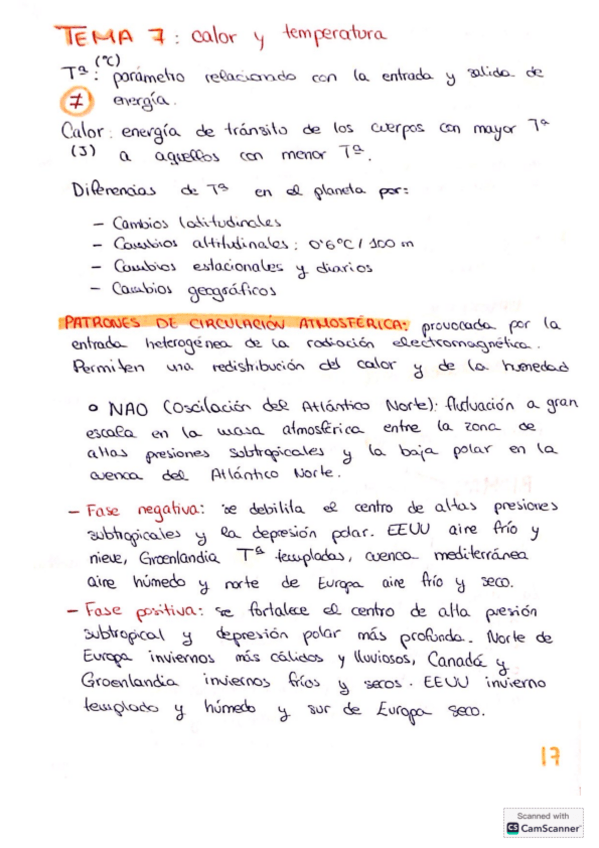 TEMA 7: calor y temperatura
(°C)
Tª: parámetro relacionado con la entrada y salida de
7 energía.
Calor: energía de tránsito de los cuerpos con mayor Tª
(J) a aquellos con menor Tª.
Diferencias de Tª en el planeta por:
- Cambios latitudinales
- Cambios altitudinales: 0'6°C / 100 m
- Cambios estacionales y diarios
- Cambios geográficos
PATRONES DE CIRCULACIÓN ATMOSFÉRICA: provocada por la
entrada heterogénea de la radiación electromagnética.
Permiten una redistribución del calor y de la humedad
o NAO (Oscilación del Atlántico Norte): fluctuación a gran
escala en la masa atmosférica entre la zona de
altas presiones subtropicales y la baja polar en la
cuenca del Atlántico Norte.
- Fase negativa: se debilita el centro de altas presiones
subtropicales y la depresión polar. EEUU aire frío y
nieve, Groenlandia Tª templadas, cuenca mediterránea
aire húmedo y norte de Europa aire frío y seco.
- Fase positiva: se fortalece el centro de alta presión
subtropical y depresión polar más profunda. Norte de
Europa inviernos más cálidos y lluviosos, Canadá y
Groenlandia inviernos fríos y secos. EEUU invierno
templado y húmedo y sur de Europa seco.
17
Scanned with
CS CamScanner